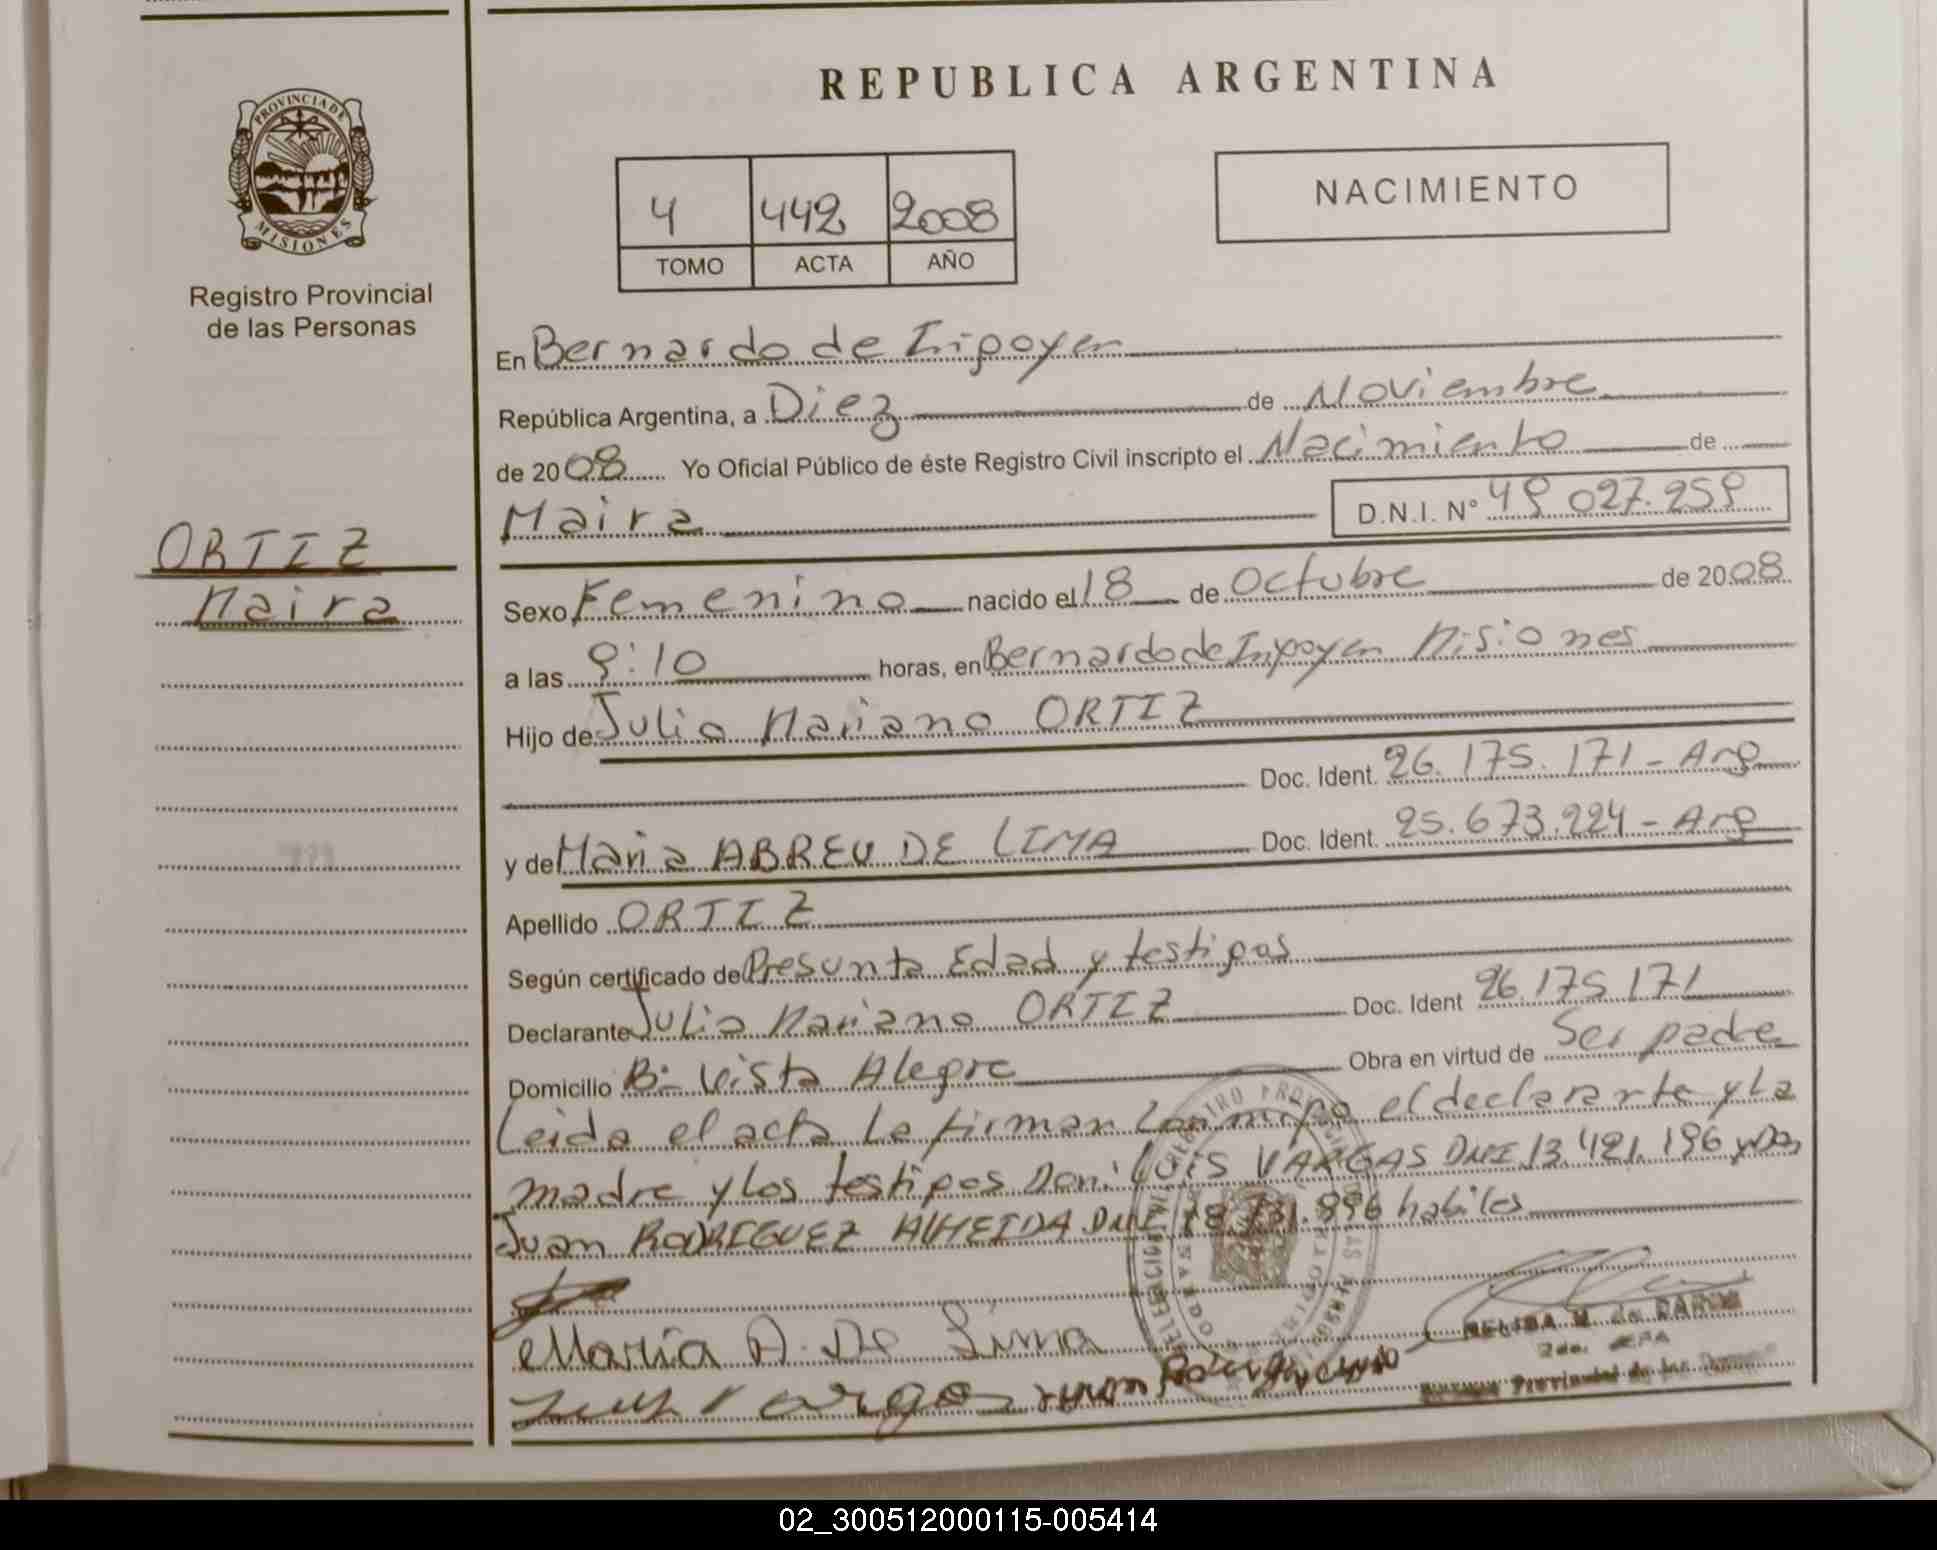 REPUBLICA ARGENTINA
PROVINCIA DE
MISIONES
Registro Provincial
de las Personas
4 442 2008
TOMO ACTA AÑO
NACIMIENTO
En Bernardo de Irigoyen
República Argentina, a Diez de Noviembre
de 2008 Yo Oficial Público de éste Registro Civil inscripto el Nacimiento de
Maira D.N.I. N° 49 027.259
ORTIZ
Maira
Sexo Femenino nacido el 18 de Octubre de 2008
a las 9:10 horas, en Bernardo de Irigoyen Misiones
Hijo de Julio Mariano ORTIZ
Doc. Ident. 26.175.171 - Arg
y de Maria ABREU DE LIMA Doc. Ident. 25.673.224 - Arg
Apellido ORTIZ
Según certificado de Presunta Edad y testigos
Declarante Julio Mariano ORTIZ Doc. Ident 26.175.171
Domicilio B° Vista Alegre Obra en virtud de Ser padre
Leida el acta la firman conmigo el declarante y La
madre y los testigos Don: LUIS VARGAS DNI 13.421.196 y Don
Juan RODRIGUEZ ALMEIDA DNI 18.731.896 habiles
Maria A. De Lima
Luis Vargas Juan
02_300512000115-005414